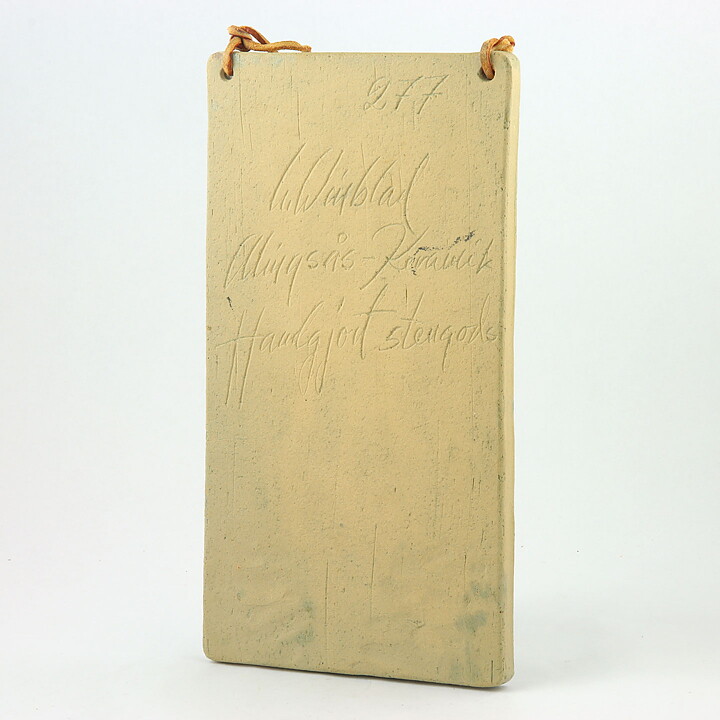 277
I. Winblad
Alingsås-Keramik
Handgjort stengods